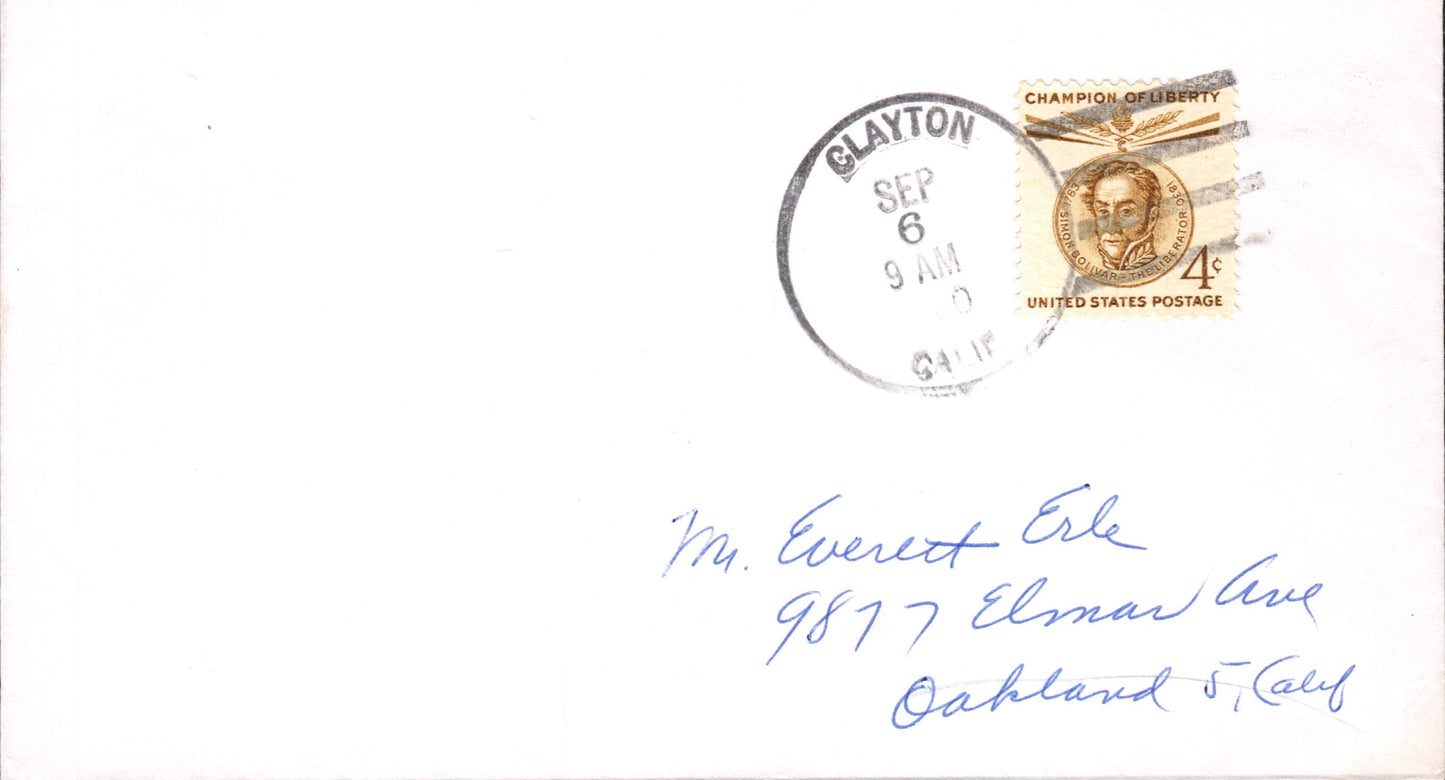 CLAYTON
SEP
6
9 AM
0
CALIF
CHAMPION OF LIBERTY
1783 SIMON BOLIVAR - THE LIBERATOR 1830
4¢
UNITED STATES POSTAGE
Mr. Everett Erle
9877 Elmar Ave
Oakland 5, Calif